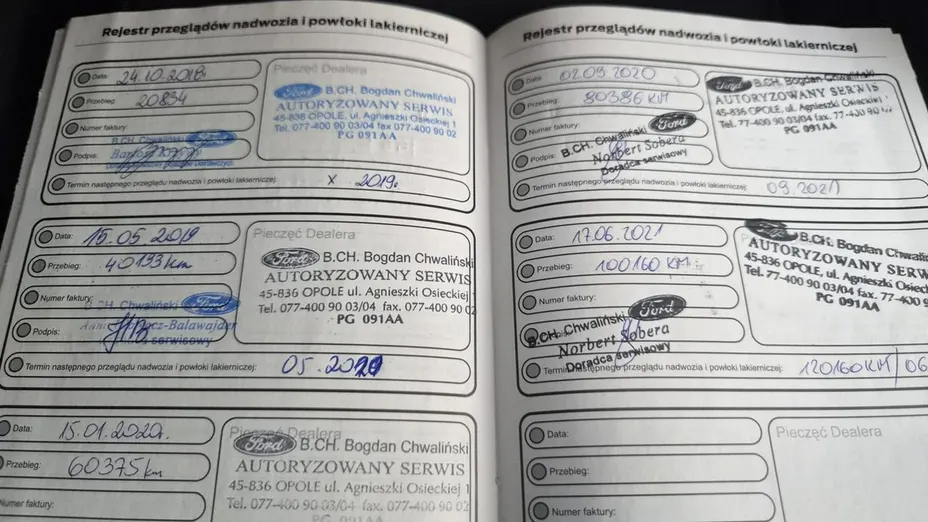 Rejestr przeglądów nadwozia i powłoki lakierniczej
Data: 24.10.2018
Przebieg: 20834
Numer faktury:
B.CH. Chwaliński Ford
Podpis:
Termin następnego przeglądu nadwozia i powłoki lakierniczej: X 2019r.
Pieczęć Dealera
Ford B.CH. Bogdan Chwaliński
AUTORYZOWANY SERWIS
45-836 OPOLE, ul. Agnieszki Osieckiej 1
Tel. 077-400 90 03/04 fax 077-400 90 02
PG 091AA
Data: 15.05.2019
Przebieg: 40193 km
Numer faktury:
B.CH. Chwaliński Ford
Podpis:
serwisowy
Termin następnego przeglądu nadwozia i powłoki lakierniczej: 05.2020
Pieczęć Dealera
Ford B.CH. Bogdan Chwaliński
AUTORYZOWANY SERWIS
45-836 OPOLE, ul. Agnieszki Osieckiej 1
Tel. 077-400 90 03/04 fax. 077-400 90 02
PG 091AA
Data: 15.01.2020r.
Przebieg: 60375 km
Numer faktury:
Pieczęć Dealera
Ford B.CH. Bogdan Chwaliński
AUTORYZOWANY SERWIS
45-836 OPOLE ul. Agnieszki Osieckiej 1
Tel. 077-400 90 03/04 fax. 077-400 90 02
PG 091AA
Rejestr przeglądów nadwozia i powłoki lakierniczej
Data: 02.09.2020
Przebieg: 80386 KM
Numer faktury:
B.CH. Chwaliński Ford
Podpis: Norbert Sobera
Doradca serwisowy
Termin następnego przeglądu nadwozia i powłoki lakierniczej: 09.2021
Ford B.CH. Bogdan Chwaliński
AUTORYZOWANY SERWIS
45-836 OPOLE, ul. Agnieszki Osieckiej
Tel. 77-400 90 03/04 fax. 77-400 90
PG 091AA
Data: 17.06.2021
Przebieg: 100160 KM
Numer faktury:
B.CH. Chwaliński Ford
Podpis: Norbert Sobera
Doradca serwisowy
Termin następnego przeglądu nadwozia i powłoki lakierniczej: 120160KM/06
B.CH. Bogdan Chwaliń
AUTORYZOWANY SERW
45-836 OPOLE, ul. Agnieszki Osiec
Tel. 77-400 90 03/04 fax. 77-400 9
PG 091AA
Data:
Przebieg:
Numer faktury:
Pieczęć Dealera